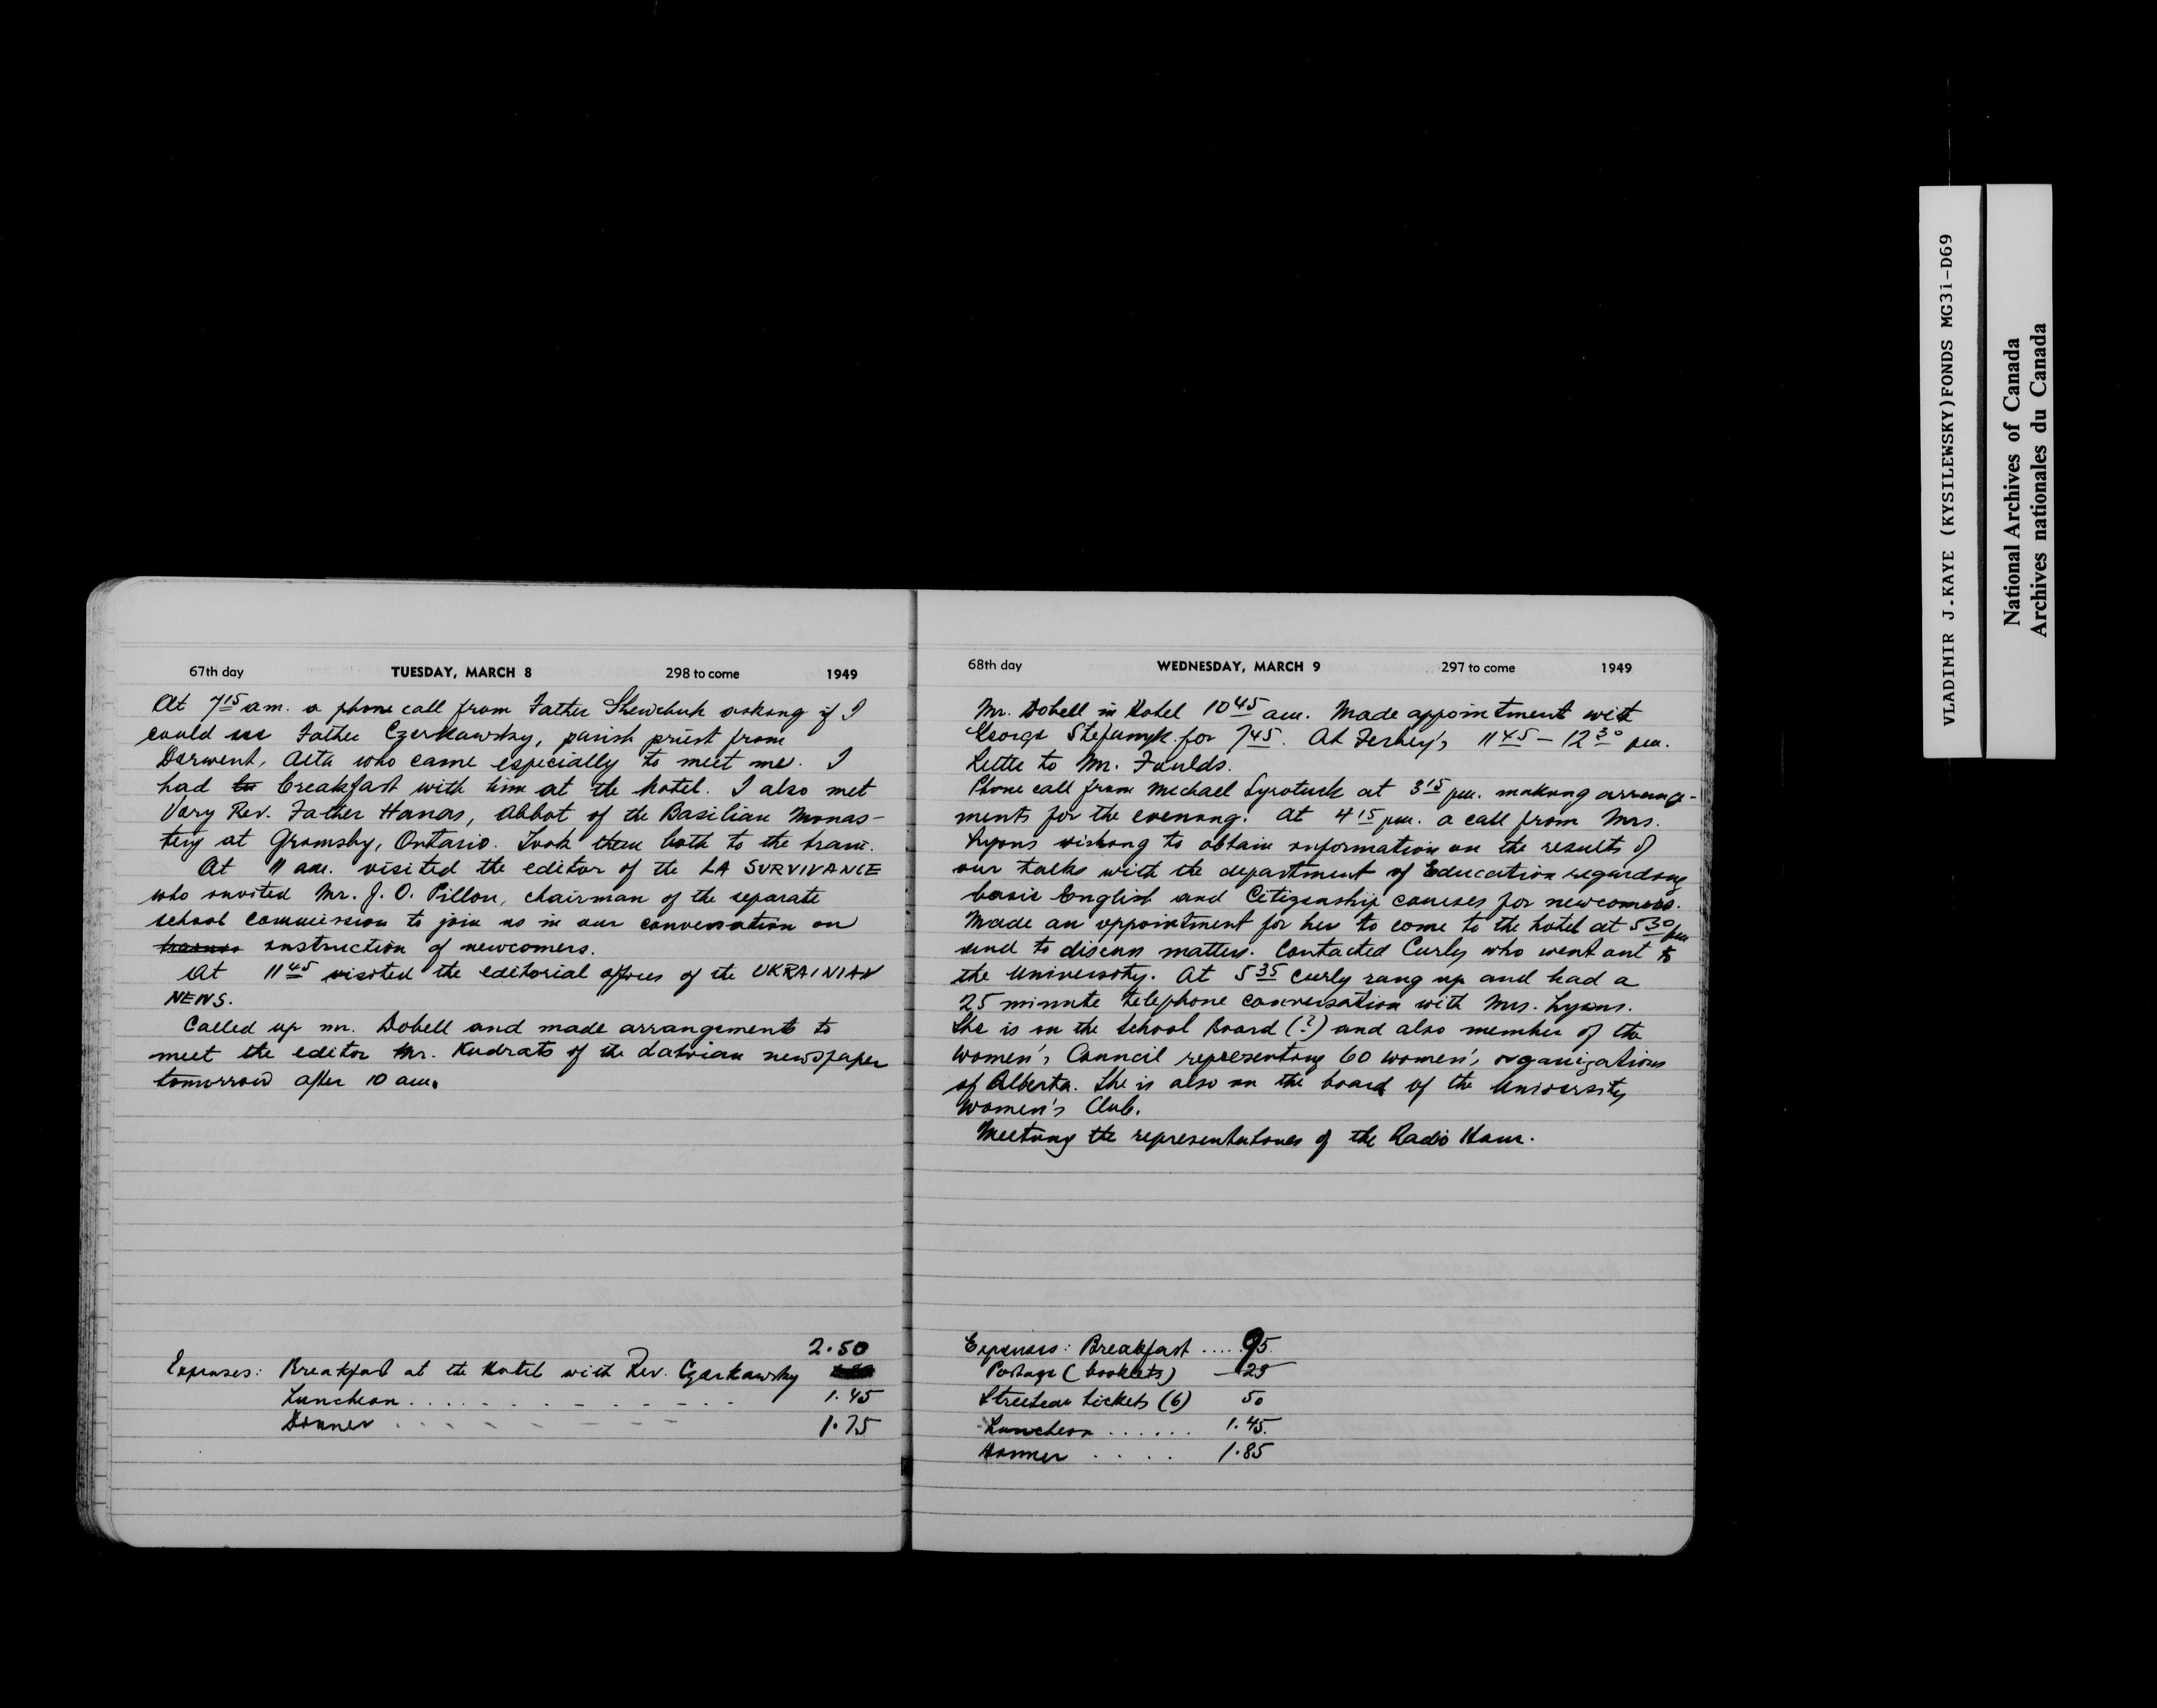 67th day TUESDAY, MARCH 8 298 to come 1949
At 7 15 am. a phone call from Father Shewchuk asking if I
could see Father Czerkawsky, parish priest from
Derwent, Alta who came especially to meet me. I
had breakfast with him at the hotel. I also met
Very Rev. Father Hanas, Abbot of the Basilian Monas-
tery at Gromsby, Ontario. Took them both to the tram.
At 11 am. visited the editor of the LA SURVIVANCE
who invited Mr. J. O. Pillon, chairman of the separate
school commission to join us in our conversation on
instruction of newcomers.
At 11 45 visited the editorial offices of the UKRAINIAN
NEWS.
Called up Mr. Dobell and made arrangements to
meet the editor Mr. Kudrats of the Latvian newspaper
tomorrow after 10 am.
2.50
Expenses: Breakfast at the Hotel with Rev. Czerkawsky
Luncheon . . . . . . . . . . 1.45
Dinner . . . . . . . 1.75
68th day WEDNESDAY, MARCH 9 297 to come 1949
Mr. Dobell in Hotel 10 45 am. Made appointment with
George Stefanyk for 7 45. At Ferbey's 11 45 – 12 30 pm.
Letter to Mr. Foulds.
Phone call from Michael Syrotuck at 3 15 pm. making arrange-
ments for the evening. At 4 15 pm. a call from Mrs.
Lyons wishing to obtain information on the results of
our talks with the department of Education regarding
basic English and Citizenship courses for newcomers.
Made an appointment for her to come to the hotel at 5 30 pm
and to discuss matters. Contacted Curly who went out to
the University. At 5 35 Curly rang up and had a
25 minute telephone conversation with Mrs. Lyons.
She is on the School Board (?) and also member of the
Women's Council representing 60 women's organizations
of Alberta. She is also on the board of the University
Women's Club.
Meeting the representatives of the Radio Hour.
Expenses: Breakfast .... 95
Postage (booklets) — 25
Streetcar tickets (6) 50
Luncheon ...... 1.45.
Dinner . . . . 1.85
VLADIMIR J.KAYE (KYSILEWSKY)FONDS MG3i-D69
National Archives of Canada
Archives nationales du Canada